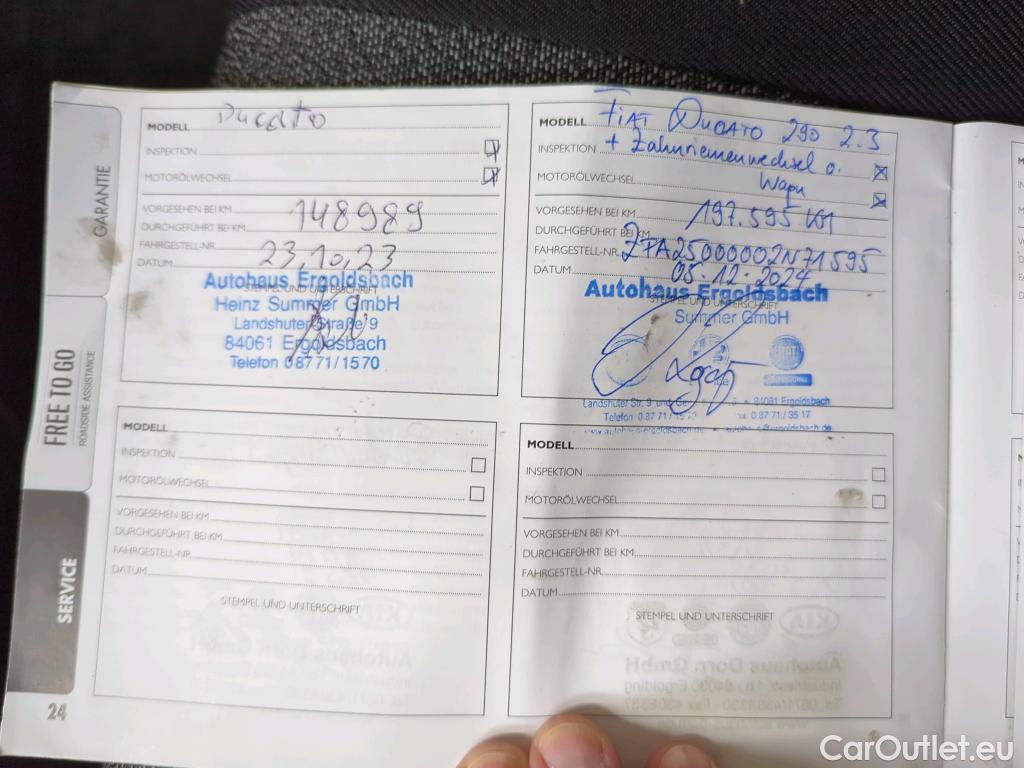 GARANTIE
FREE TO GO
ROADSIDE ASSISTANCE
SERVICE
24
MODELL Ducato
INSPEKTION
MOTORÖLWECHSEL
VORGESEHEN BEI KM
DURCHGEFÜHRT BEI KM 148989
FAHRGESTELL-NR.
DATUM 23,10,23
STEMPEL UND UNTERSCHRIFT
Autohaus Ergoldsbach
Heinz Summer GmbH
Landshuter Straße 9
84061 Ergoldsbach
Telefon 08771/1570
MODELL FIAT DUCATO 290 2.3
INSPEKTION + Zahnriemenwechsel o.
MOTORÖLWECHSEL Wapu
VORGESEHEN BEI KM
DURCHGEFÜHRT BEI KM 197.595 KM
FAHRGESTELL-NR. ZFA25000002N71595
DATUM 05.12.2024
STEMPEL UND UNTERSCHRIFT
Autohaus Ergoldsbach
Summer GmbH
FIAT
Landshuter Str. 9 und • 84061 Ergoldsbach
Telefon 0 87 71 / 15 0 87 71 / 35 17
www.autohaus-ergoldsbach.de • ergoldsbach.de
MODELL
INSPEKTION
MOTORÖLWECHSEL
VORGESEHEN BEI KM
DURCHGEFÜHRT BEI KM
FAHRGESTELL-NR.
DATUM
STEMPEL UND UNTERSCHRIFT
MODELL
INSPEKTION
MOTORÖLWECHSEL
VORGESEHEN BEI KM
DURCHGEFÜHRT BEI KM
FAHRGESTELL-NR.
DATUM
STEMPEL UND UNTERSCHRIFT
CarOutlet.eu